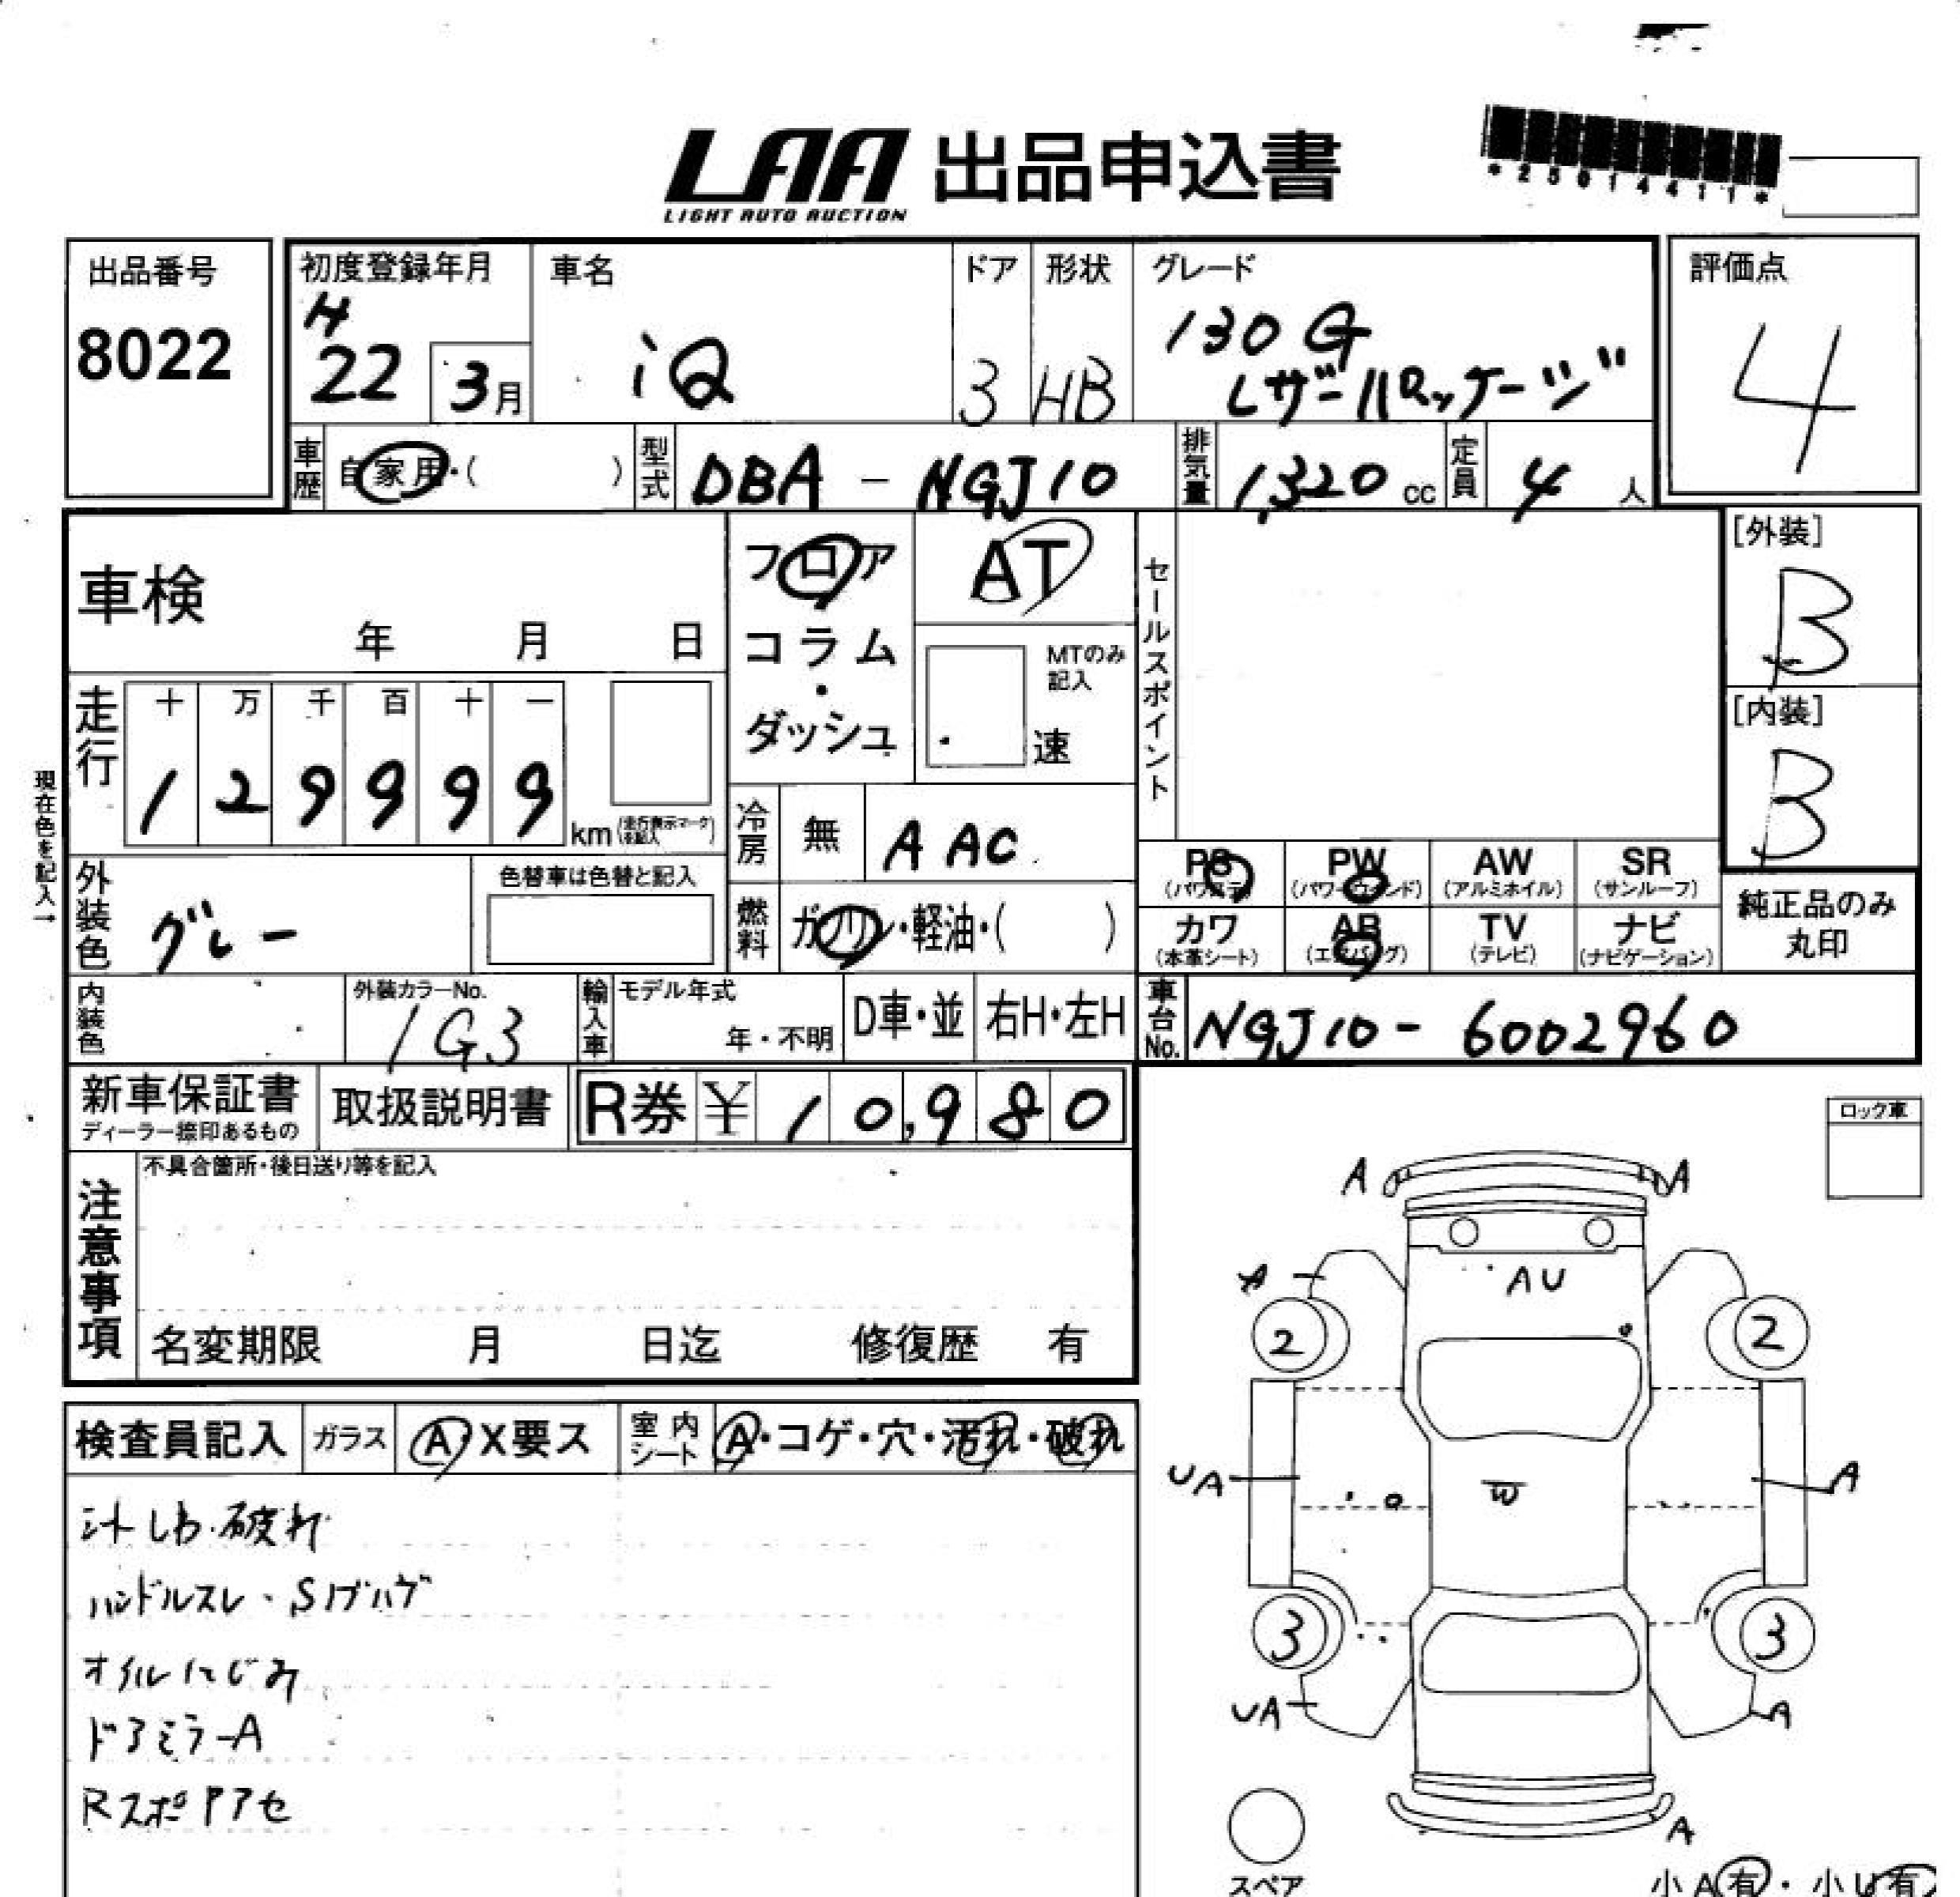 LAA 出品申込書
LIGHT AUTO AUCTION
*25014411*
出品番号
8022
初度登録年月
H
22 3月
車名
iQ
ドア
3
形状
HB
グレード
130G
レザーパッケージ
評価点
4
車歴
自家用・( )
型式
DBA - NGJ10
排気量
1,320 cc
定員
4 人
車検
年 月 日
フロア
・
コラム
・
ダッシュ
AT
MTのみ
記入
速
セールスポイント
[外装]
B
[内装]
B
走行
十 万 千 百 十 一
1 2 9 9 9 9
km (走行表示マークを記入)
現在色を記入→
冷房
無
AAC
外装色
グレー
色替車は色替と記入
燃料
ガソリン・軽油・( )
PS
(パワステ)
PW
(パワーウィンド)
AW
(アルミホイル)
SR
(サンルーフ)
カワ
(本革シート)
AB
(エアバッグ)
TV
(テレビ)
ナビ
(ナビゲーション)
純正品のみ
丸印
内装色
外装カラーNo.
1G3
輸入車
モデル年式
年・不明
D車・並
右H・左H
車台No.
NGJ10 - 6002960
新車保証書
ディーラー捺印あるもの
取扱説明書
R券 ¥ 10,980
ロック車
注意事項
不具合箇所・後日送り等を記入
名変期限 月 日迄 修復歴 有
検査員記入
ガラス
A・X要ス
室内
シート
A・コゲ・穴・汚れ・破れ
シートしわ・破れ
ハンドルスレ・Sノブハゲ
オイルにじみ
ドアミラーA
Rスポイアセ
A A
A AU
2 2
UA W A
3 3
UA A
A
スペア
小A有・小U有